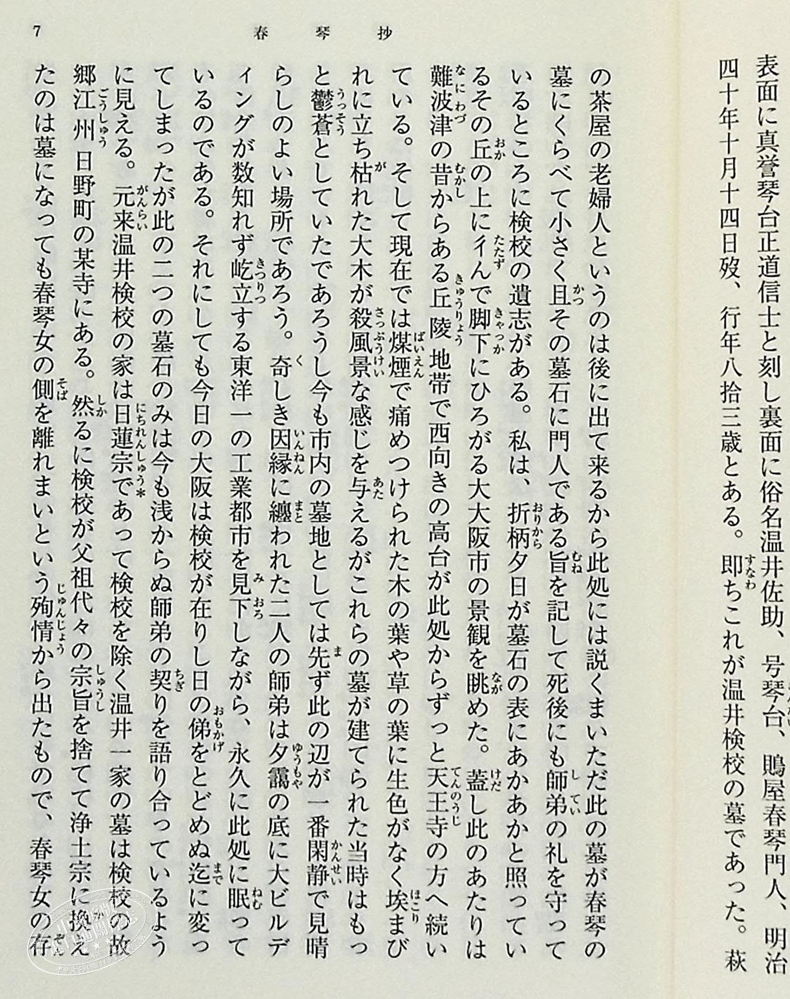 表面に真誉琴台正道信士と刻し裏面に俗名温井佐助、号琴台、鵙屋春琴門人、明治
四十年十月十四日歿、行年八拾三歳とある。即ちこれが温井検校の墓であった。萩
7 春琴抄
の茶屋の老婦人というのは後に出て来るから此処には説くまいただ此の墓が春琴の
墓にくらべて小さく且その墓石に門人である旨を記して死後にも師弟の礼を守って
いるところに検校の遺志がある。私は、折柄夕日が墓石の表にあかあかと照ってい
るその丘の上に彳んで脚下にひろがる大大阪市の景観を眺めた。蓋し此のあたりは
難波津の昔からある丘陵地帯で西向きの高台が此処からずっと天王寺の方へ続い
ている。そして現在では煤煙で痛めつけられた木の葉や草の葉に生色がなく埃まび
れに立ち枯れた大木が殺風景な感じを与えるがこれらの墓が建てられた当時はもっ
と鬱蒼としていたであろうし今も市内の墓地としては先ず此の辺が一番閑静で見晴
らしのよい場所であろう。奇しき因縁に纏われた二人の師弟は夕靄の底に大ビルデ
ィングが数知れず屹立する東洋一の工業都市を見下しながら、永久に此処に眠って
いるのである。それにしても今日の大阪は検校が在りし日の俤をとどめぬ迄に変っ
てしまったが此の二つの墓石のみは今も浅からぬ師弟の契りを語り合っているよう
に見える。元来温井検校の家は日蓮宗であって検校を除く温井一家の墓は検校の故
郷江州日野町の某寺にある。然るに検校が父祖代々の宗旨を捨てて浄土宗に換え
たのは墓になっても春琴女の側を離れまいという殉情から出たもので、春琴女の存